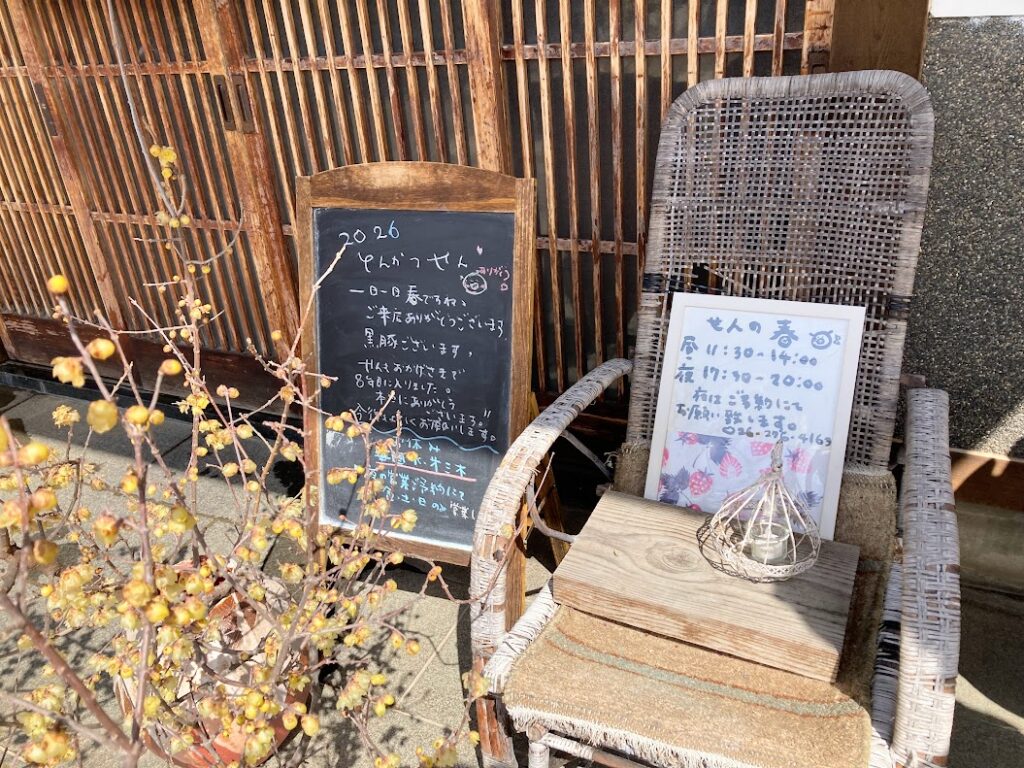 2026
とんかつ せん
ありがとう
一日一日春ですね。
ご来店ありがとうございます
黒豚ございます。
せんもおかげさまで
8年目に入りました。
本当にありがとう
ございます。
今後もよろしくお願いします。
お休み
毎週水・第三木
夜の営業ご予約にて
金・土・日のみ営業
せんの春
昼 11:30-14:00
夜 17:30-20:00
夜はご予約にて
お願い致します。